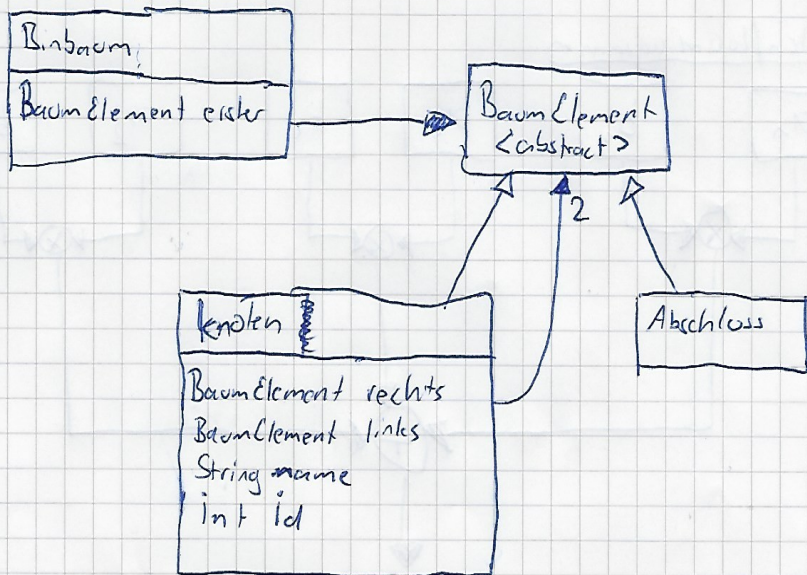 Binbaum
BaumElement erster
BaumElement
<abstract>
2
Knoten
BaumElement rechts
BaumElement links
String name
int id
Abschluss